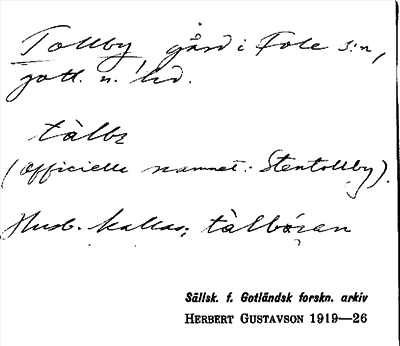 Tollby, gård i Fole s:n,
gotl. n. hd.
tàlbı
(Officielle namnet: Stentollby).
Husb. kallas: tàlbóran
Sällsk. f. Gotländsk forskn. arkiv
HERBERT GUSTAVSON 1919—26